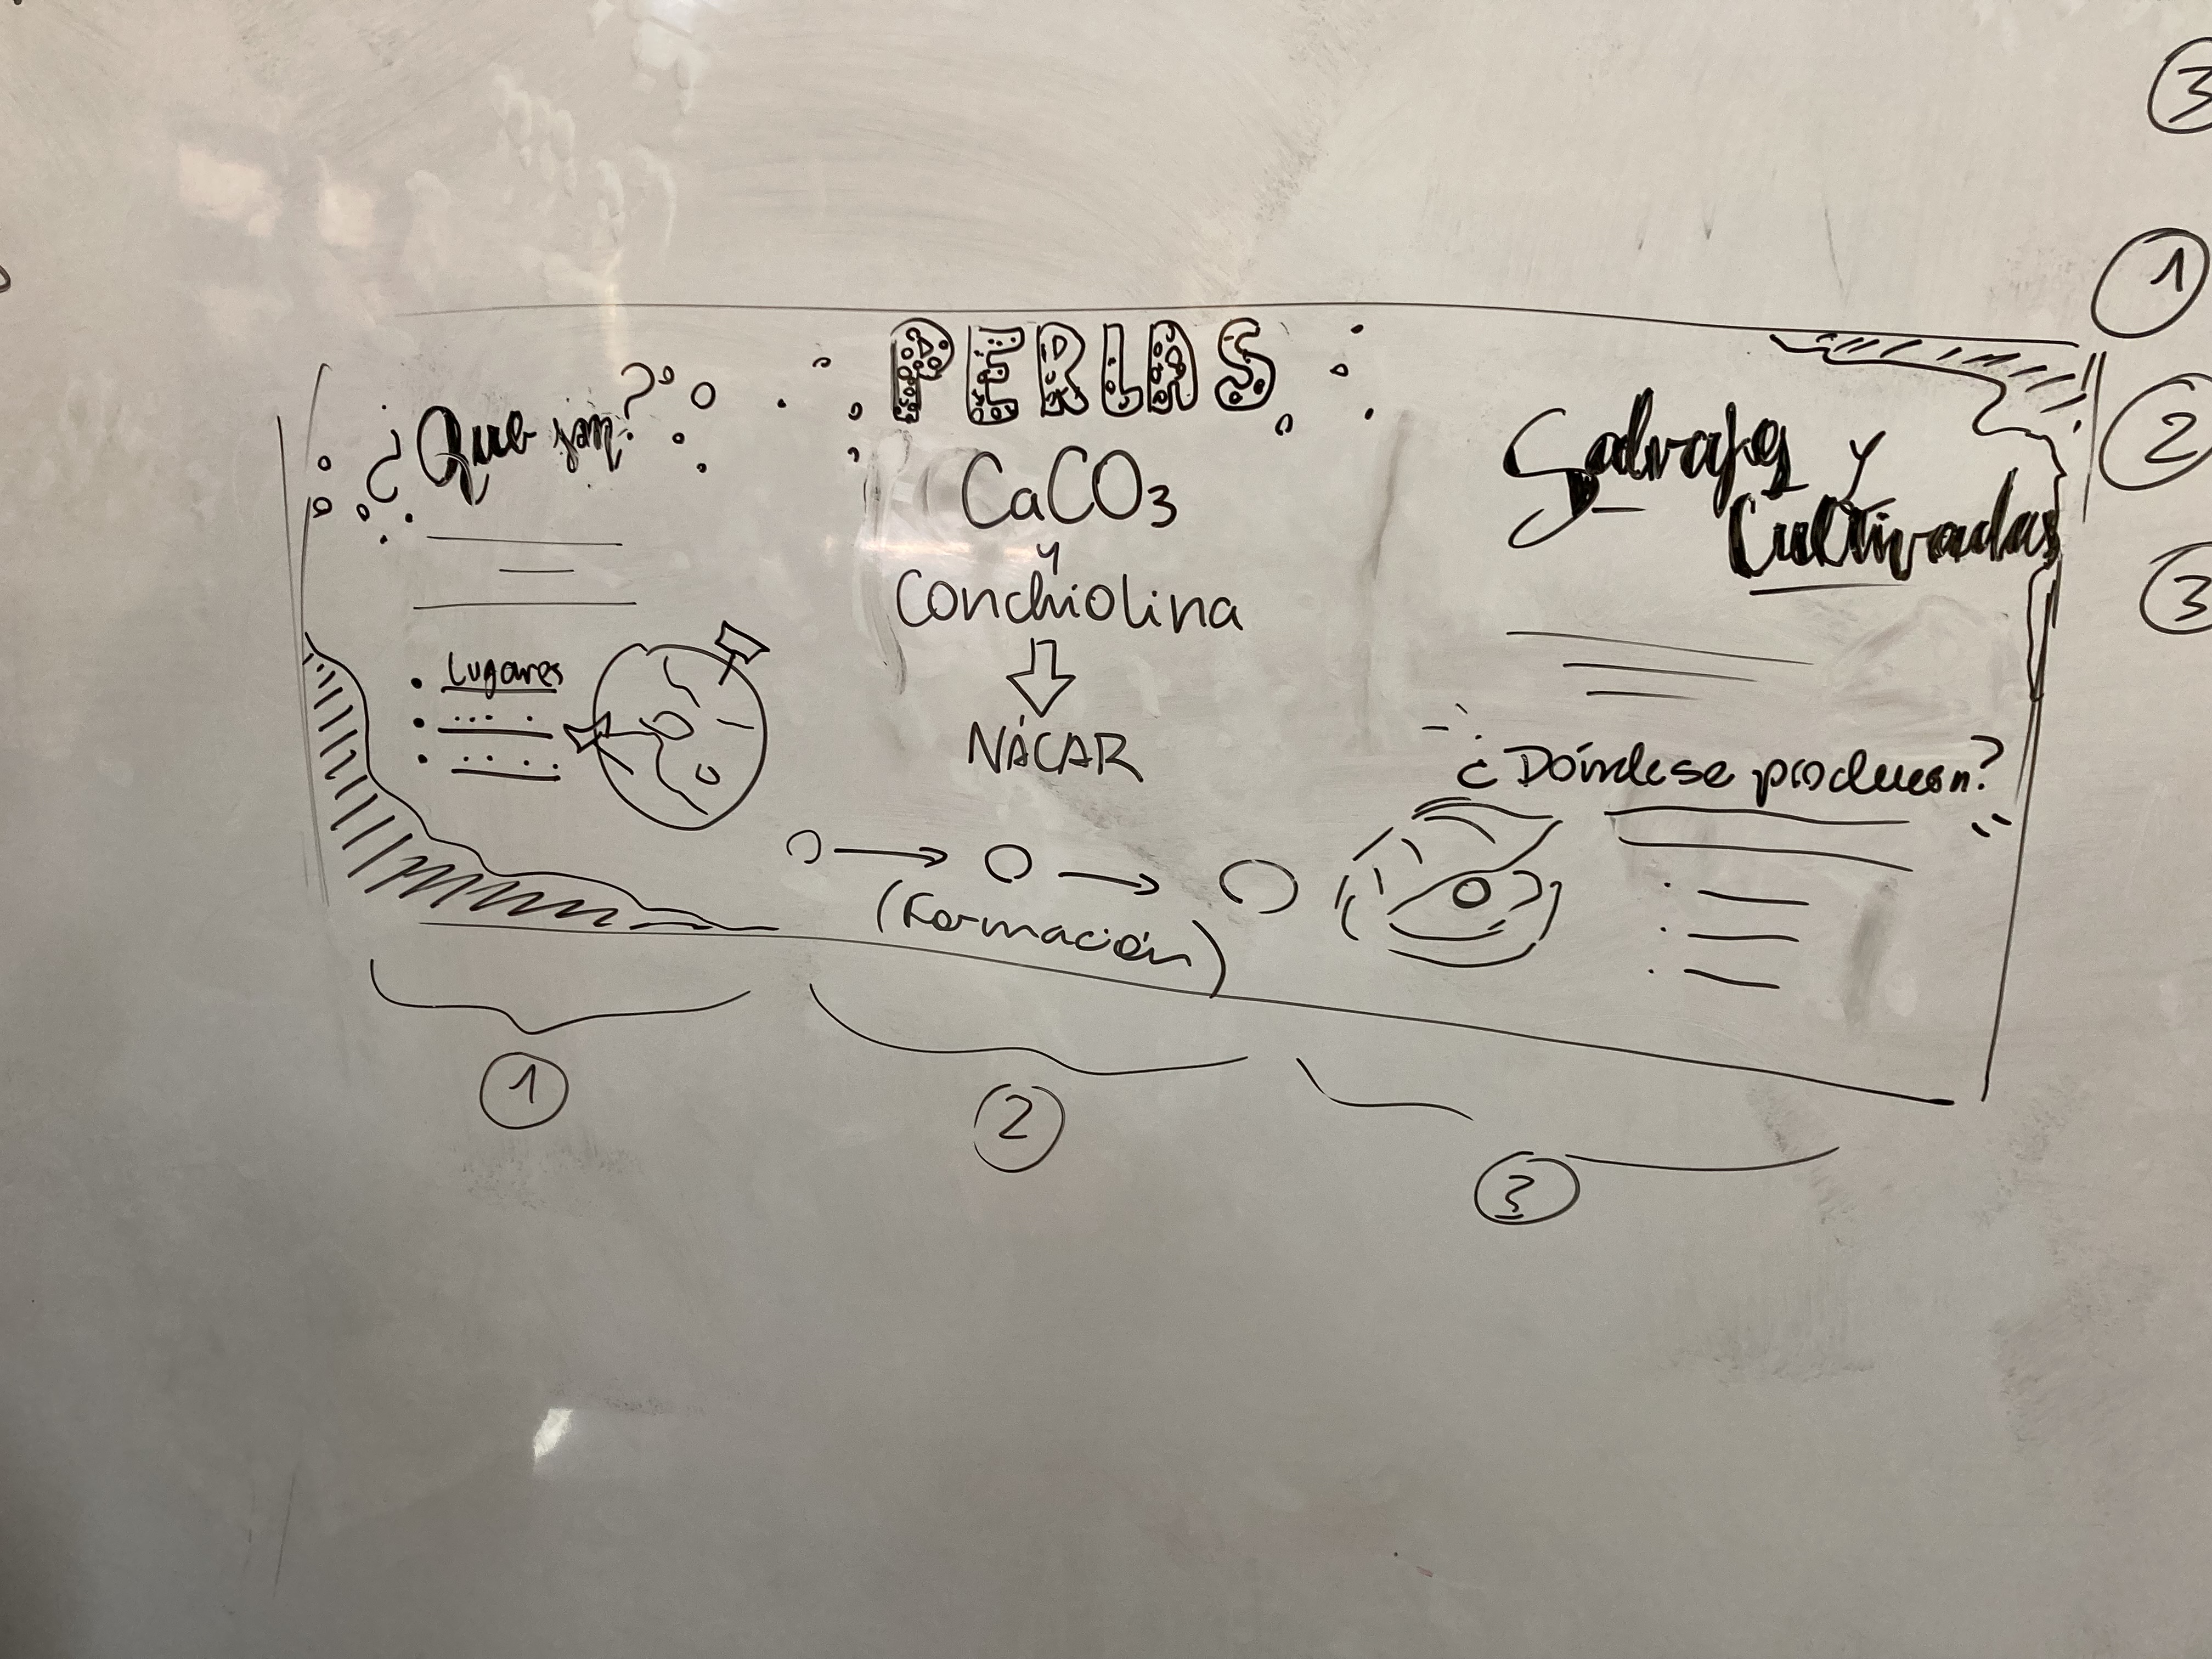 PERLAS
¿Que son?
Lugares
CaCO3
y
Conchiolina
NÁCAR
(Formación)
Salvajes y
Cultivadas
¿Dónde se producen?
1
2
3
3
1
2
3